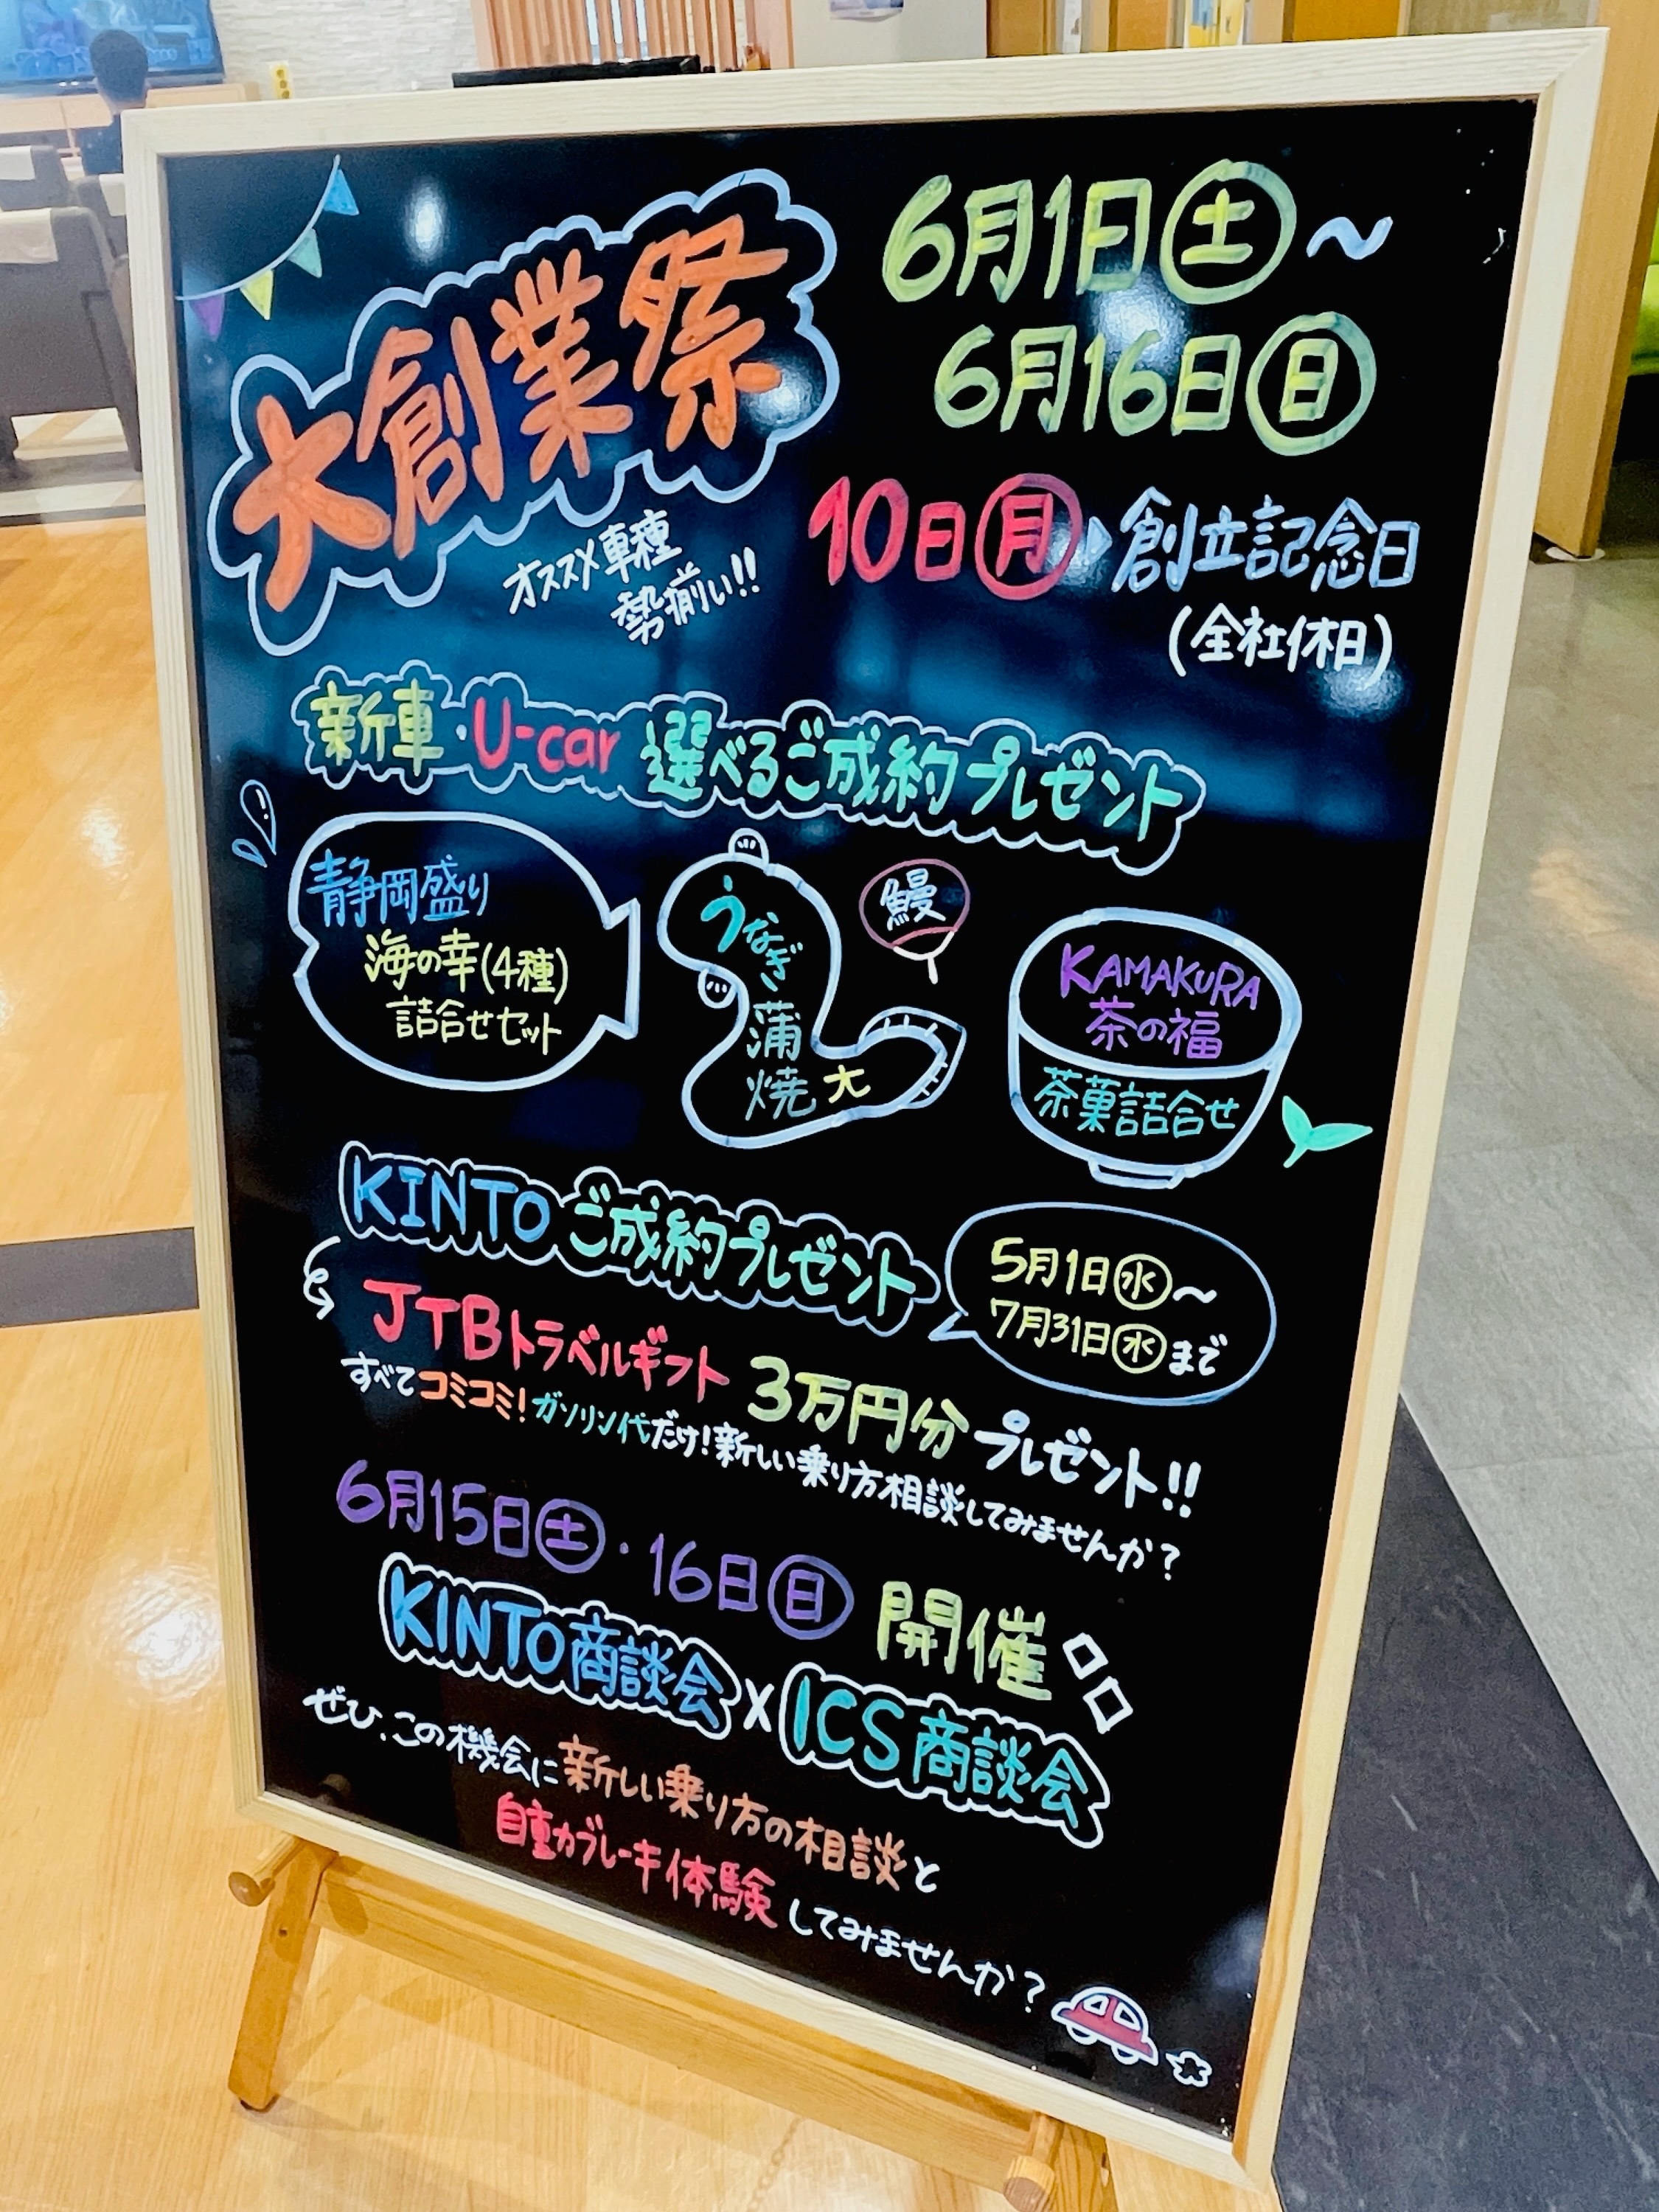 大創業祭
6月1日㊏〜
6月16日㊐
オススメ車種
勢揃い!!
10日㊊▶創立記念日
(全社休日)
新車・U-car 選べるご成約プレゼント
静岡盛り
海の幸(4種)
詰合せセット
うなぎ
蒲
焼大
鰻
KAMAKURA
茶の福
茶菓詰合せ
KINTOご成約プレゼント
5月1日㊌〜
7月31日㊌まで
JTBトラベルギフト 3万円分プレゼント!!
すべてコミコミ!ガソリン代だけ!新しい乗り方相談してみませんか?
6月15日㊏・16日㊐ 開催
KINTO商談会×ICS商談会
ぜひ、この機会に新しい乗り方の相談と
自動ブレーキ体験してみませんか?